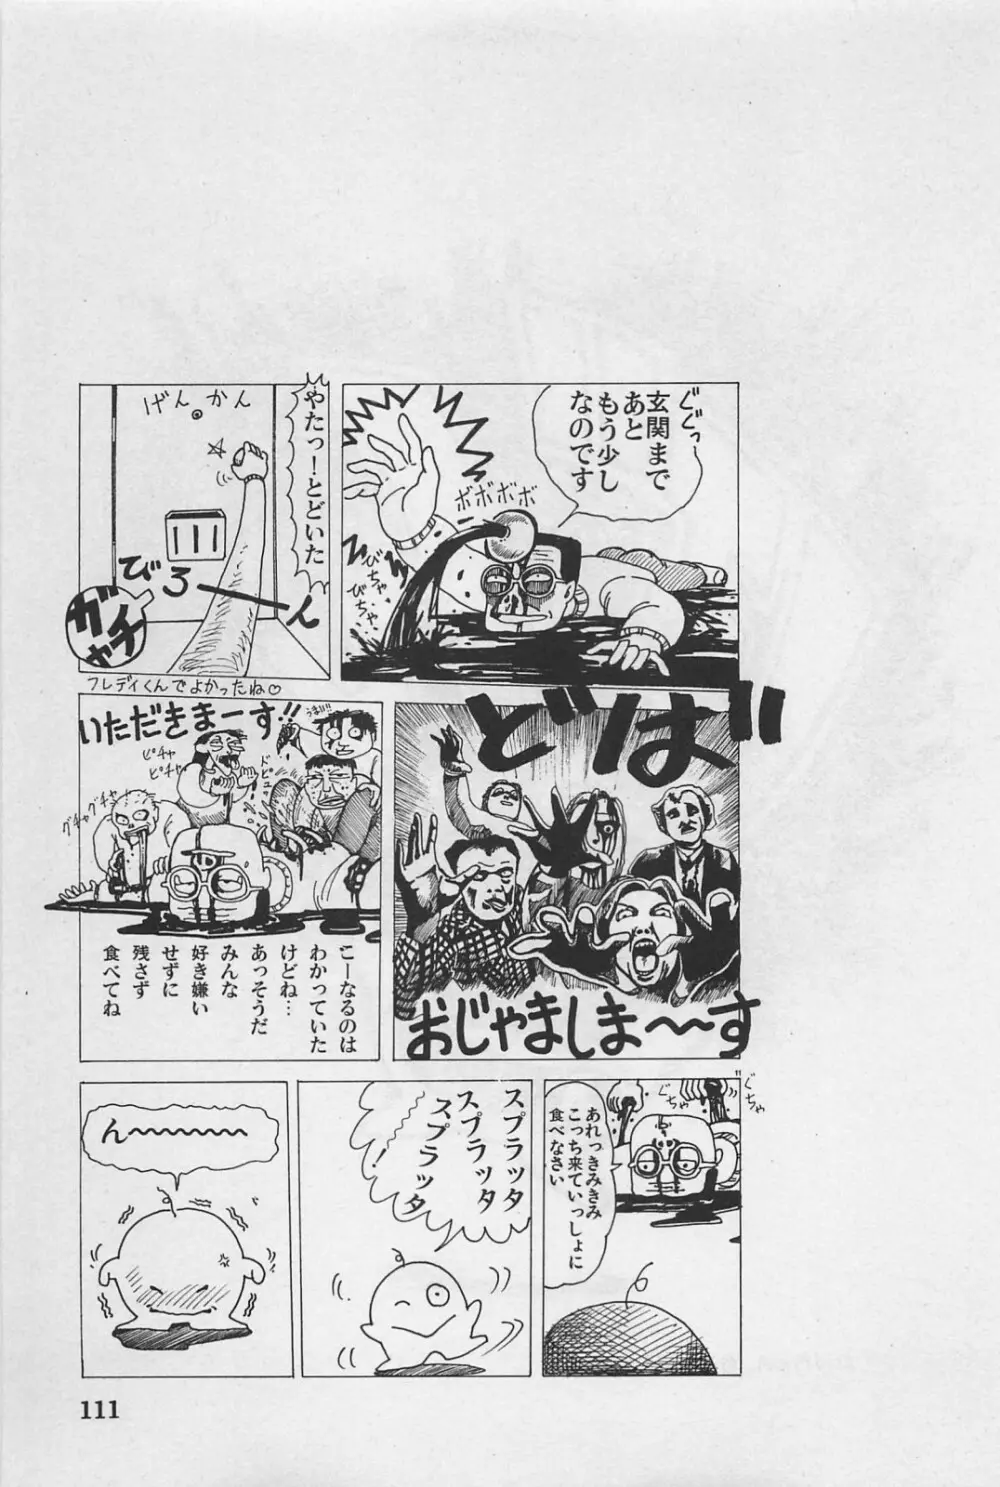 ぐぐっ
玄関まで
あと
もう少し
なのです
ボボボボ
びちゃ
びちゃ
やたっ!とどいた
げんかん
びろーーん
ガチャ
フレディくんでよかったね♡
どばっ
おじゃましま〜〜す
いただきまーす!!
うま!!!
ドピュ
ピチャ
ピチャ
グチャグチャ
こーなるのは
わかっていた
けどね…
あっそうだ
みんな
好き嫌い
せずに
残さず
食べてね
ぐちゃ
ぐちゃ
あれっきみきみ
こっち来ていっしょに
食べなさい
スプラッタ
スプラッタ
スプラッタ
〜〜〜!
ん〜〜〜〜〜〜
111